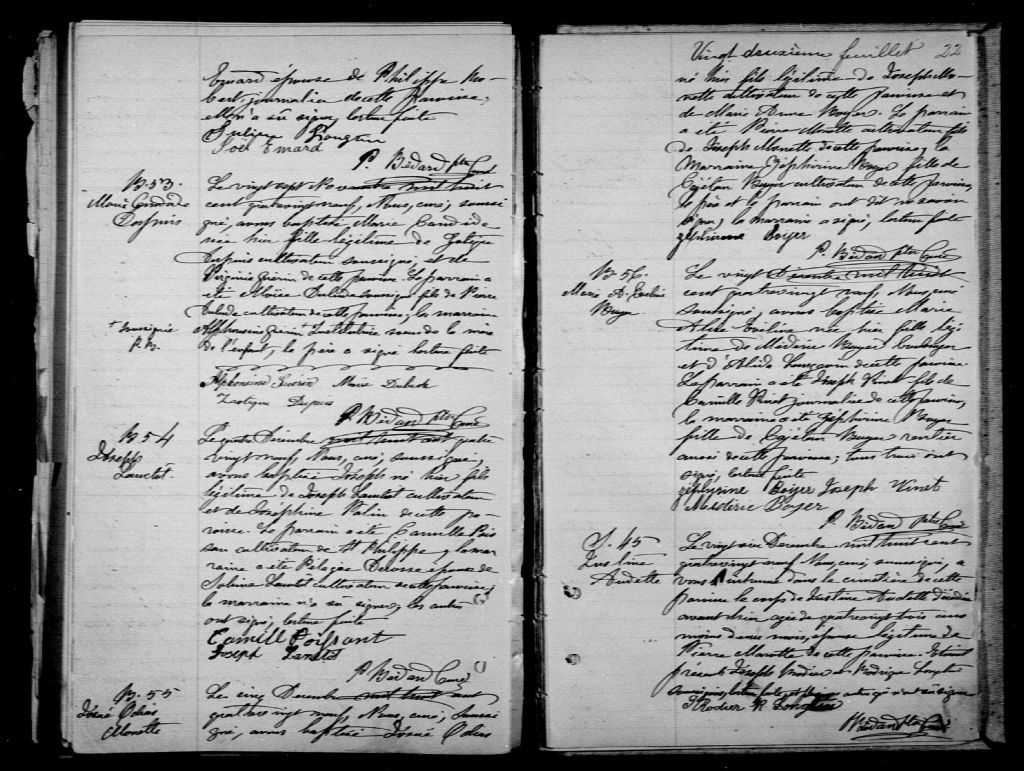 Emard épouse de Philippe
bert, journalier de cette paroisse,
a su signer, lecture faite
Julien Longtin
Joël Emard
P. Bédard Ptre Curé
B. 53
Marie Candide
Dupuis
Le vingt sept Novembre mil huit
cent quatrevingt neuf, Nous, curé, soussi
gné, avons baptisé Marie Candide
née hier fille légitime de Zotique
Dupuis cultivateur soussigné, et de
Virginie Guérin de cette paroisse. Le parrain a
été Moïse Dulude soussigné fils de Pierre
Dulude cultivateur de cette paroisse; la marraine
+ soussignée
P. B.
Alphonsine Guérin + Institutrice
de l'enfant, le père a signé lecture faite
Alphonsine Guérin Moïse Dulude
Zotique Dupuis
P. Bédard Ptre Curé
B 54
Joseph
Lanctot.
Le Décembre mil huit cent quatre
vingt neuf, Nous, curé, soussigné,
avons baptisé Joseph né hier fils
légitime de Joseph Lanctot cultivateur
et de Joséphine Palin de cette pa-
roisse. Le parrain a été Camille Pois
san cultivateur de St Philippe; la mar
raine a été Pélagie épouse de
Lanctot cultivateur de cette paroisse;
la marraine n'a su signer, les autres
ont signé, lecture faite
Camill Poissant
Joseph Lanctot
P. Bédard Curé
B. 55
Josué Odias
Monette
Le cinq Décembre mil huit cent
quatre vingt neuf, Nous, curé, soussi
gné, avons baptisé Josué Odias
Vingt deuxième feuillet 22
né hier fils légitime de Joseph Mo-
nette cultivateur de cette paroisse et
de Marie Anne Boyer. Le parrain
a été Pierre Monette cultivateur fils
de Joseph Monette de cette paroisse; la
Marraine Zéphirine Boyer fille de
Cajetan Boyer cultivateur de cette paroisse,
le père et le parrain ont dit ne savoir
signer; la marraine a signé, lecture faite
Zéphirine Boyer
P. Bédard Ptre Curé
B. 56
Marie A.
Boyer
Le vingt Décembre mil huit
cent quatrevingt neuf, Nous, curé
soussigné, avons baptisé Marie
née hier fille légi
time de Médéric Boyer
et d'Alida de cette paroisse.
Le parrain a été Joseph Vinet fils de
Camille Vinet journalier de cette paroisse,
la marraine a été Zéphirine Boyer
fille de Cajetan Boyer rentier
aussi de cette paroisse; tous trois ont
signé, lecture faite
Zéphirine Boyer Joseph Vinet
Mederic Boyer
P. Bédard Ptre Curé
S. 45
Justine
Audette
Le vingt six Décembre mil huit cent
quatrevingt neuf Nous, curé, soussigné, a
vons inhumé dans le cimetière de cette
paroisse le corps de Justine Audette décédée
avant hier agée de quatrevingt trois ans
moins deux mois, épouse légitime de
Pierre Monette de cette paroisse. Etaient
présents Joseph Rodier et Rodrigue Longtin
J Rodier R Longtin
P. Bédard Ptre Curé